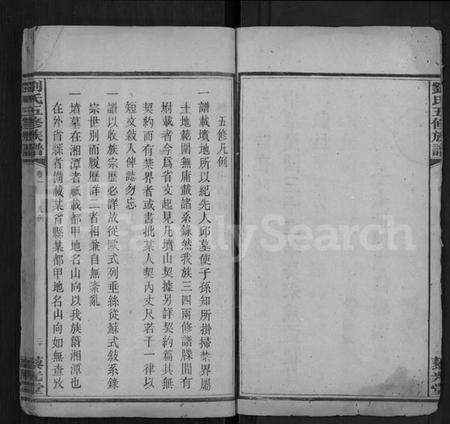 劉氏五修族譜
五修凡例
一譜載墳地所以紀先人邱墓使子孫知所掛掃禁界屬
土地範圍無庸載諸系錄然我族三四兩修牒閒有
坿載者今爲省文起見凡墳山契據另詳契約篇其無
契約而有禁界者或書批某人契內丈尺若干一律以
短文敍入俾誌勿忘
一譜以收族宗歷必詳故從歐式列垂絲從蘇式敍系錄
宗世別而履歷詳二者相兼自無紊亂
一墳墓在湘潭者祗載都甲地名山向以我族籍湘潭也
在外省縣者備載某省縣某都甲地名山向如無查攷
劉氏五修族譜
卷一
凡例
藜光堂
FamilySearch